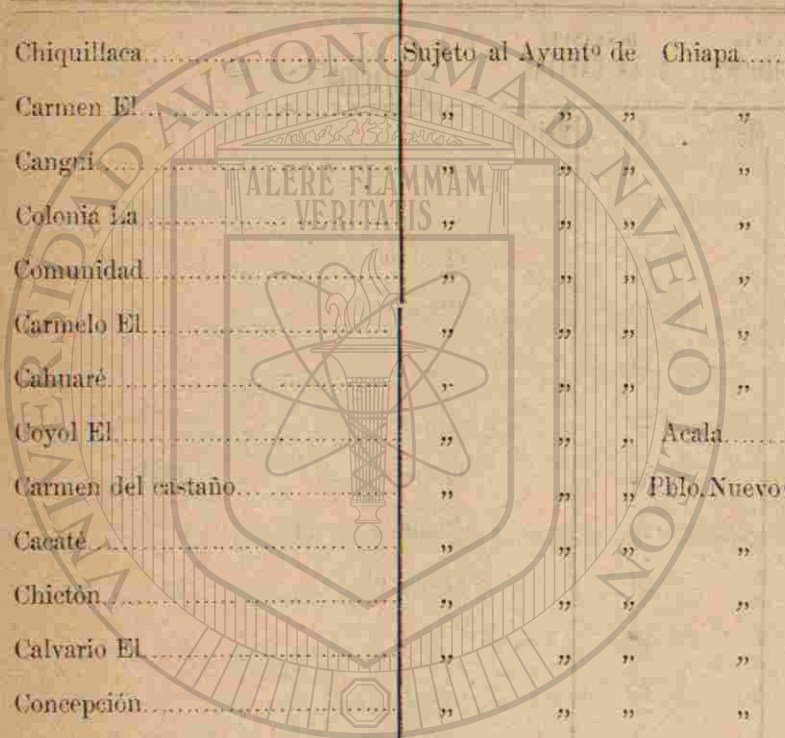 Chiquillaca....................Sujeto al Ayuntº de Chiapa.....
Carmen El.................... „ „ „ „
Cangui.................... „ „ „ „
Colonia La.................... „ „ „ „
Comunidad.................... „ „ „ „
Carmelo El.................... „ „ „ „
Cahuaré.................... „ „ „ „
Coyol El.................... „ „ „ Acala........
Carmen del castaño.................... „ „ „ Pblo.Nuevo
Cacaté.................... „ „ „ „
Chictón.................... „ „ „ „
Calvario El.................... „ „ „ „
Concepción.................... „ „ „ „
UNIVERSIDAD AVTONOMA D NVEVO LEON
ALERE FLAMMAM
VERITATIS